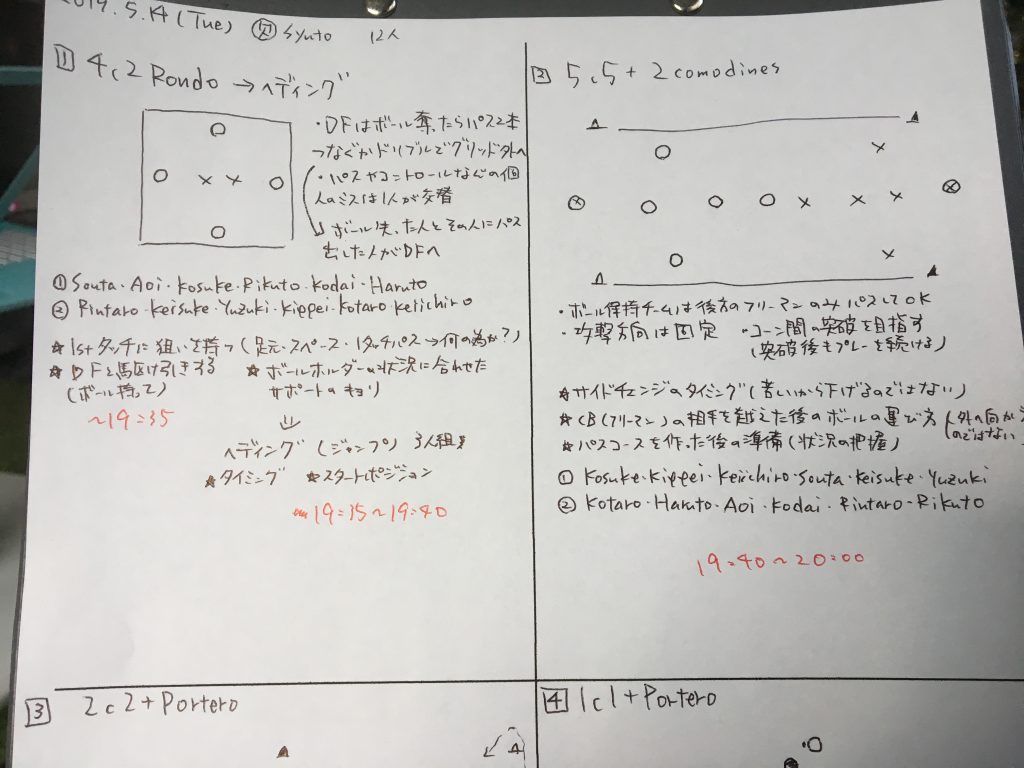 2019.5.14(Tue) 欠 Syuto 12人
1 4c2 Rondo →ヘディング
・DFはボール奪ったらパス2本
つなぐかドリブルでグリッド外へ
・パスやコントロールなどの個
人のミスは1人が交替
ボール失った人とその人にパス
出した人がDFへ
① Souta・Aoi・Kosuke・Rikuto・Kodai・Haruto
② Rintaro・Keisuke・Yuzuki・Kippei・Kotaro・Keiichiro
★1stタッチに狙いを持つ(足元・スペース・1タッチパス→何の為か?)
★DFと駆け引きする
(ボール持って)
★ボールホルダーの状況に合わせた
サポートのキョリ
~19:35
⇓
ヘディング (ジャンプ) 3人組
★タイミング ★スタートポジション
19:35~19:40
2 5c5+2comodines
・ボール保持チームは後方のフリーマンのみパスしてOK
・攻撃方向は固定 ・コーン間の突破を目指す
(突破後もプレーを続ける)
★サイドチェンジのタイミング(苦しいから下げるのではない)
★CB(フリーマン)の相手を越えた後のボールの運び方(外へ向かう
のではない
★パスコースを作った後の準備(状況の把握)
① Kosuke・Kippei・Keiichiro・Souta・Keisuke・Yuzuki
② Kotaro・Haruto・Aoi・Kodai・Rintaro・Rikuto
19:40~20:00
3 2c2+Portero
4 1c1+Portero